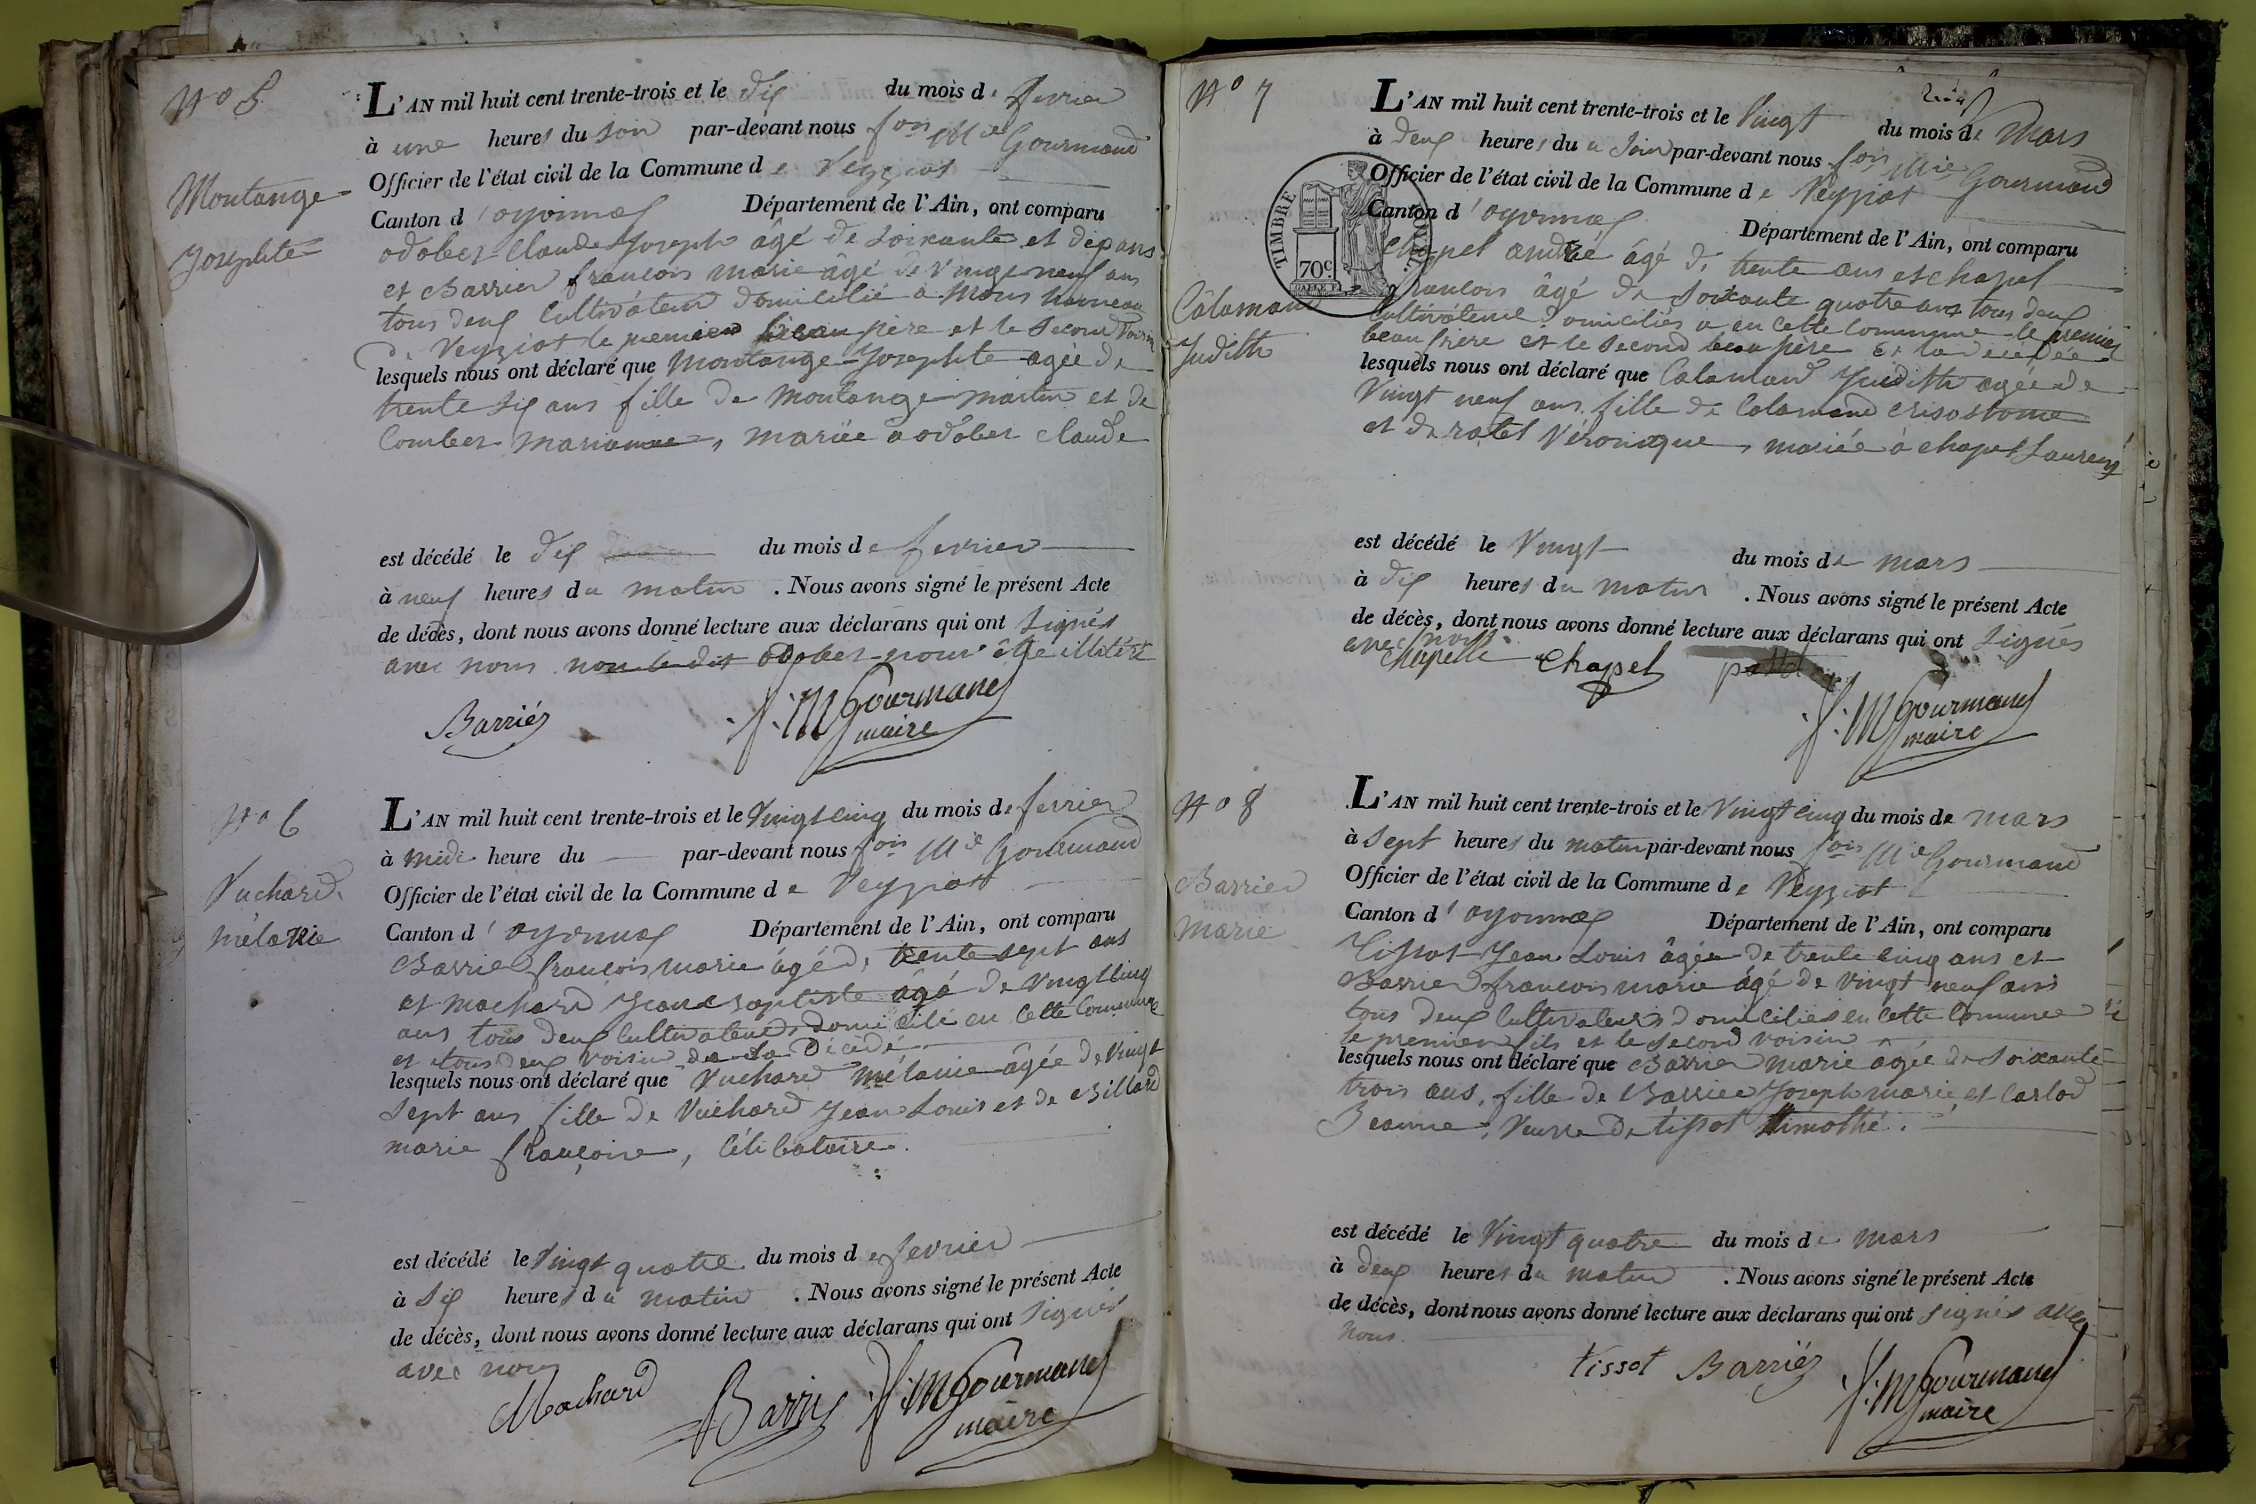 N° 5.
Montange
Josephte
L'AN mil huit cent trente-trois et le dix du mois de fevrier
à une heures du soir par-devant nous fois Mie Gourmand
Officier de l'état civil de la Commune de Veyziat
Canton d'oyonnax Département de l'Ain, ont comparu
odobez Claude Joseph âgé de soixante et dix ans
et Barrier francois marie âgé de vingt neuf ans
tous deux Cultivateur domicilié à Mons hameau
de Veyziat le premier beau père et le second voisin
lesquels nous ont déclaré que Montange Josephte agée de
trente six ans fille de Montange martin et de
Combet marianne, mariée a odobez claude
est décédé le dix du mois de fevrier
à neuf heures du matin . Nous avons signé le présent Acte
de décès, dont nous avons donné lecture aux déclarans qui ont signés
avec nous non le dit odobez pour être illitéré
Barriér J: M Gourmand
maire
N° 6
Vuchard
mélanie
L'AN mil huit cent trente-trois et le vingt cinq du mois de fevrier
à midi heure du par-devant nous fois Mie Gourmand
Officier de l'état civil de la Commune de Veyziat
Canton d'oyonnax Département de l'Ain, ont comparu
Barrier françois marie âgé de trente sept ans
et machard Jean Baptiste âgé de vingt cinq
ans tous deux Cultivateurs domicilié en cette Commune
et tous deux voisin de la Décedé
lesquels nous ont déclaré que Vuchard mélanie âgée de Vingt
sept ans fille de Vuchard Jean Louis et de Billard
marie françoise, célibataire.
est décédé le Vingt quatre du mois de fevrier
à six heures du matin . Nous avons signé le présent Acte
de décès, dont nous avons donné lecture aux déclarans qui ont signés
avec nous
Machard Barrier J: M Gourmand
maire
N° 7
Calamand
Judith
L'AN mil huit cent trente-trois et le Vingt du mois de mars
à deux heures du soir par-devant nous fois Mie Gourmand
Officier de l'état civil de la Commune de Veyziat
Canton d'oyonnax Département de l'Ain, ont comparu
TIMBRE ROYAL.
70c
Chapel andrée âgé de trente ans et chapel
francois âgé de soixante quatre ans tous deux
cultivateurs domiciliés en cette commune le premier
beau frère et le second beau père de la decedée
lesquels nous ont déclaré que Calamand Judith agée de
Vingt neuf ans. fille de Calamand Crisostome
et de ratel Véronique, mariée à chapel Laurent
est décédé le Vingt du mois de mars
à dix heures du matin . Nous avons signé le présent Acte
de décès, dont nous avons donné lecture aux déclarans qui ont signés
avec nous.
chapelle Chapel
J: M Gourmand
maire
N° 8
Barrier
Marie
L'AN mil huit cent trente-trois et le Vingt cinq du mois de mars
à sept heures du matin par-devant nous fois Mie Gourmand
Officier de l'état civil de la Commune de Veyziat
Canton d'oyonnax Département de l'Ain, ont comparu
Tissot Jean Louis âgée de trente cinq ans et
Barrier francois marie âgé de vingt neuf ans
tous deux Cultivateurs domiciliés en cette Commune
le premier fils et le second voisin
lesquels nous ont déclaré que Barrier marie âgée de soixante
trois ans, fille de Barrier Joseph marie et Carlod
Jeanne, Veuve de tissot timothé.
est décédé le Vingt quatre du mois de mars
à deux heures du matin . Nous avons signé le présent Acte
de décès, dont nous avons donné lecture aux déclarans qui ont signés avec
nous.
tissot Barriér J: M Gourmand
maire